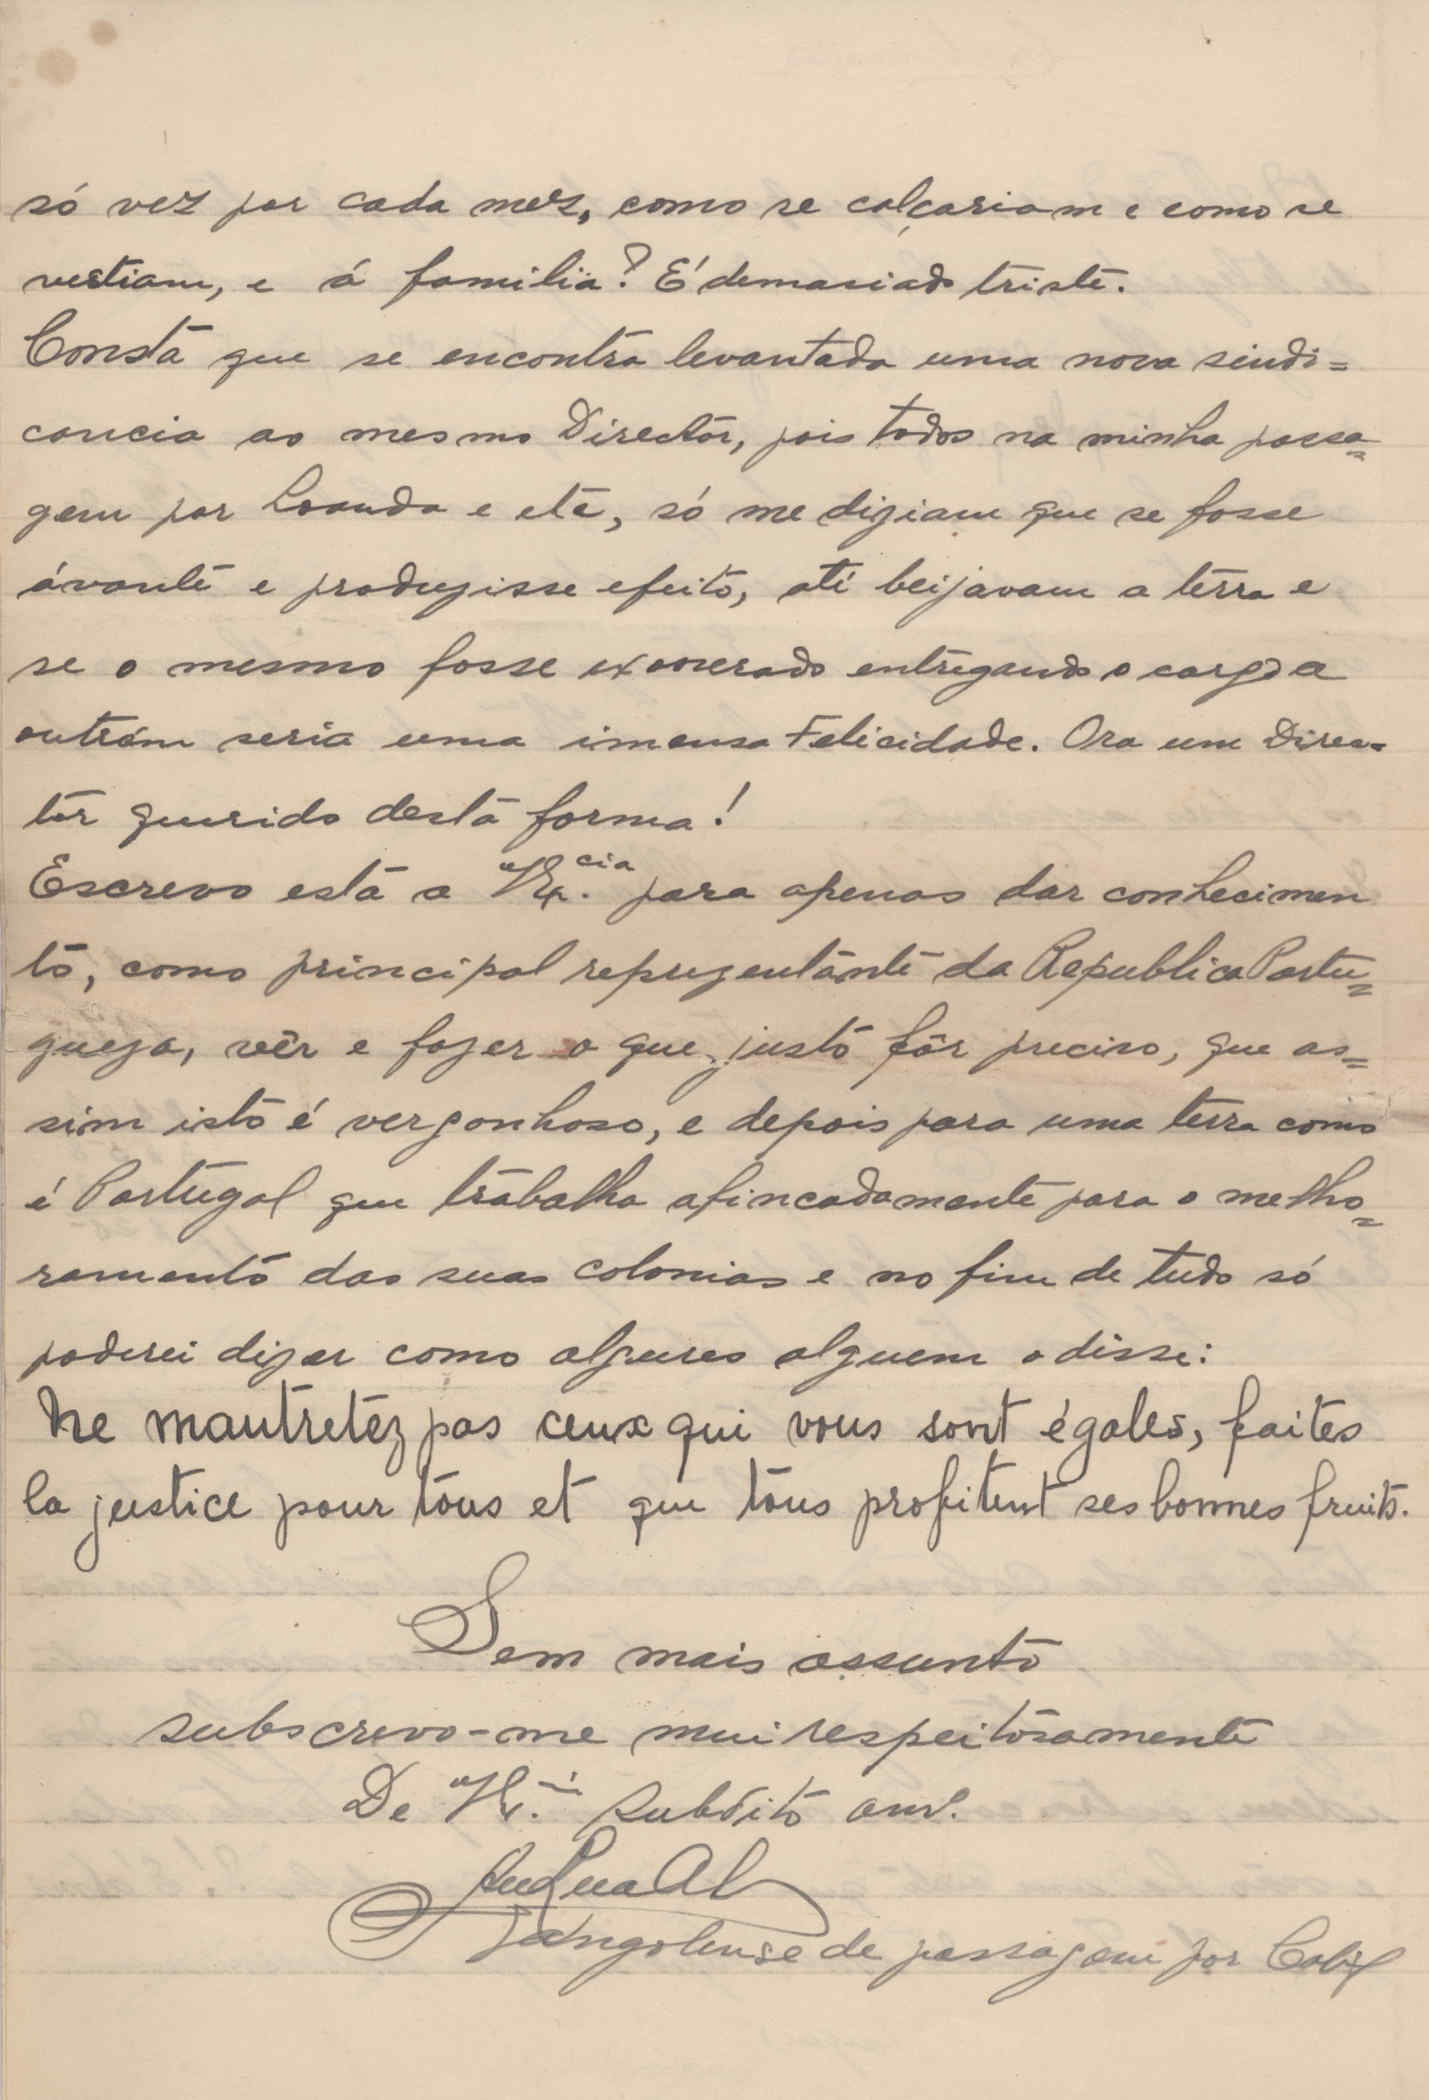 só vez por cada mez, como se calçariam e como se
vestiam, e á familia? É demasiado triste.
Consta que se encontra levantada uma nova sindi=
cancia ao mesmo Director, pois todos na minha passa=
gem por Loanda e etc, só me diziam que se fosse
ávante e produzisse efeito, até beijavam a terra e
se o mesmo fosse exonerado entregando o cargo a
outrém seria uma imensa Felicidade. Ora um Direc=
tor querido desta forma!
Escrevo esta a V.Ex.cia para apenas dar conhecimen
to, como principal reprezentante da Republica Portu=
gueza, vêr e fazer o que justo fôr preciso, que as=
sim isto é vergonhoso, e depois para uma terra como
é Portugal que trabalha afincadamente para o melho=
ramento das suas colonias e no fim de tudo só
poderei dizer como algures alguem o disse:
Ne mautretez pas ceux qui vous sont égales, faites
la justice pour tous et que tous profitent ses bonnes fruits.
Sem mais assunto
subscrevo-me mui respeitosamente
De V.Ex. subdito
Angolense de passagem por